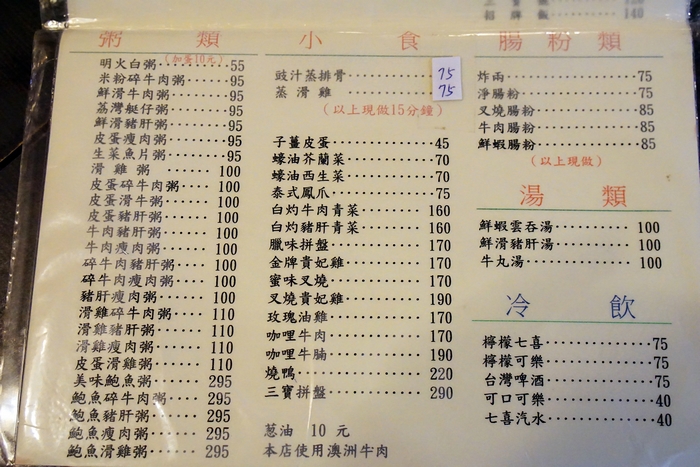 招牌飯 140
粥類
明火白粥(加蛋10元) 55
米粉碎牛肉粥 95
鮮滑牛肉粥 95
荔灣艇仔粥 95
鮮滑豬肝粥 95
皮蛋瘦肉粥 95
生菜魚片粥 95
滑雞粥 100
皮蛋碎牛肉粥 100
皮蛋滑牛粥 100
皮蛋豬肝粥 100
牛肉豬肝粥 100
牛肉瘦肉粥 100
碎牛肉豬肝粥 100
碎牛肉瘦肉粥 100
豬肝瘦肉粥 100
滑雞碎牛肉粥 110
滑雞豬肝粥 110
滑雞瘦肉粥 110
皮蛋滑雞粥 110
美味鮑魚粥 295
鮑魚碎牛肉粥 295
鮑魚豬肝粥 295
鮑魚瘦肉粥 295
鮑魚滑雞粥 295
小食
豉汁蒸排骨 75
蒸滑雞 75
(以上現做15分鐘)
子薑皮蛋 45
蠔油芥蘭菜 70
蠔油西生菜 70
泰式鳳爪 75
白灼牛肉青菜 160
白灼豬肝青菜 160
臘味拼盤 170
金牌貴妃雞 170
蜜味叉燒 170
叉燒貴妃雞 190
玫瑰油雞 170
咖哩牛肉 170
咖哩牛腩 190
燒鴨 220
三寶拼盤 290
蔥油 10 元
本店使用澳洲牛肉
腸粉類
炸兩 75
淨腸粉 75
叉燒腸粉 85
牛肉腸粉 85
鮮蝦腸粉 85
(以上現做)
湯類
鮮蝦雲吞湯 100
鮮滑豬肝湯 100
牛丸湯 100
冷飲
檸檬七喜 75
檸檬可樂 75
台灣啤酒 75
可口可樂 40
七喜汽水 40